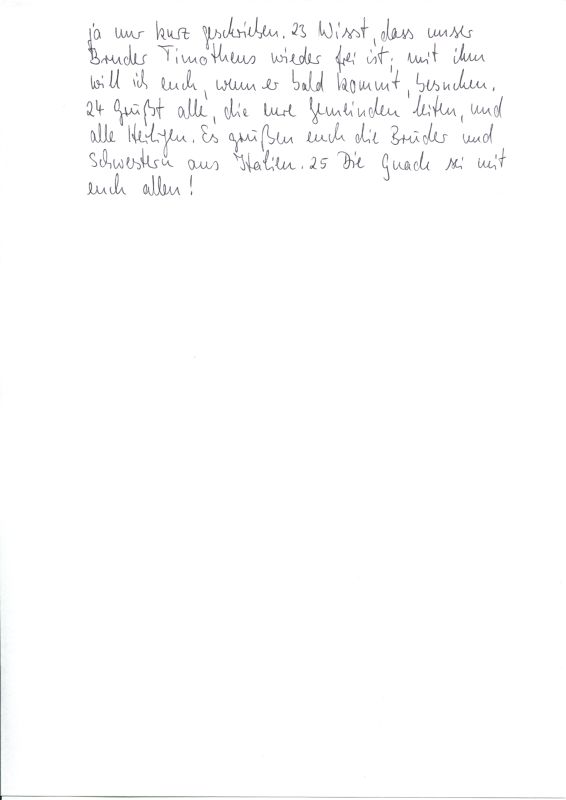 ja nur kurz geschrieben. 23 Wisst, dass unser
Bruder Timotheus wieder frei ist; mit ihm
will ich euch, wenn er bald kommt, besuchen.
24 Grüßt alle, die eure Gemeinden leiten, und
alle Heiligen. Es grüßen euch die Brüder und
Schwestern aus Italien. 25 Die Gnade sei mit
euch allen!